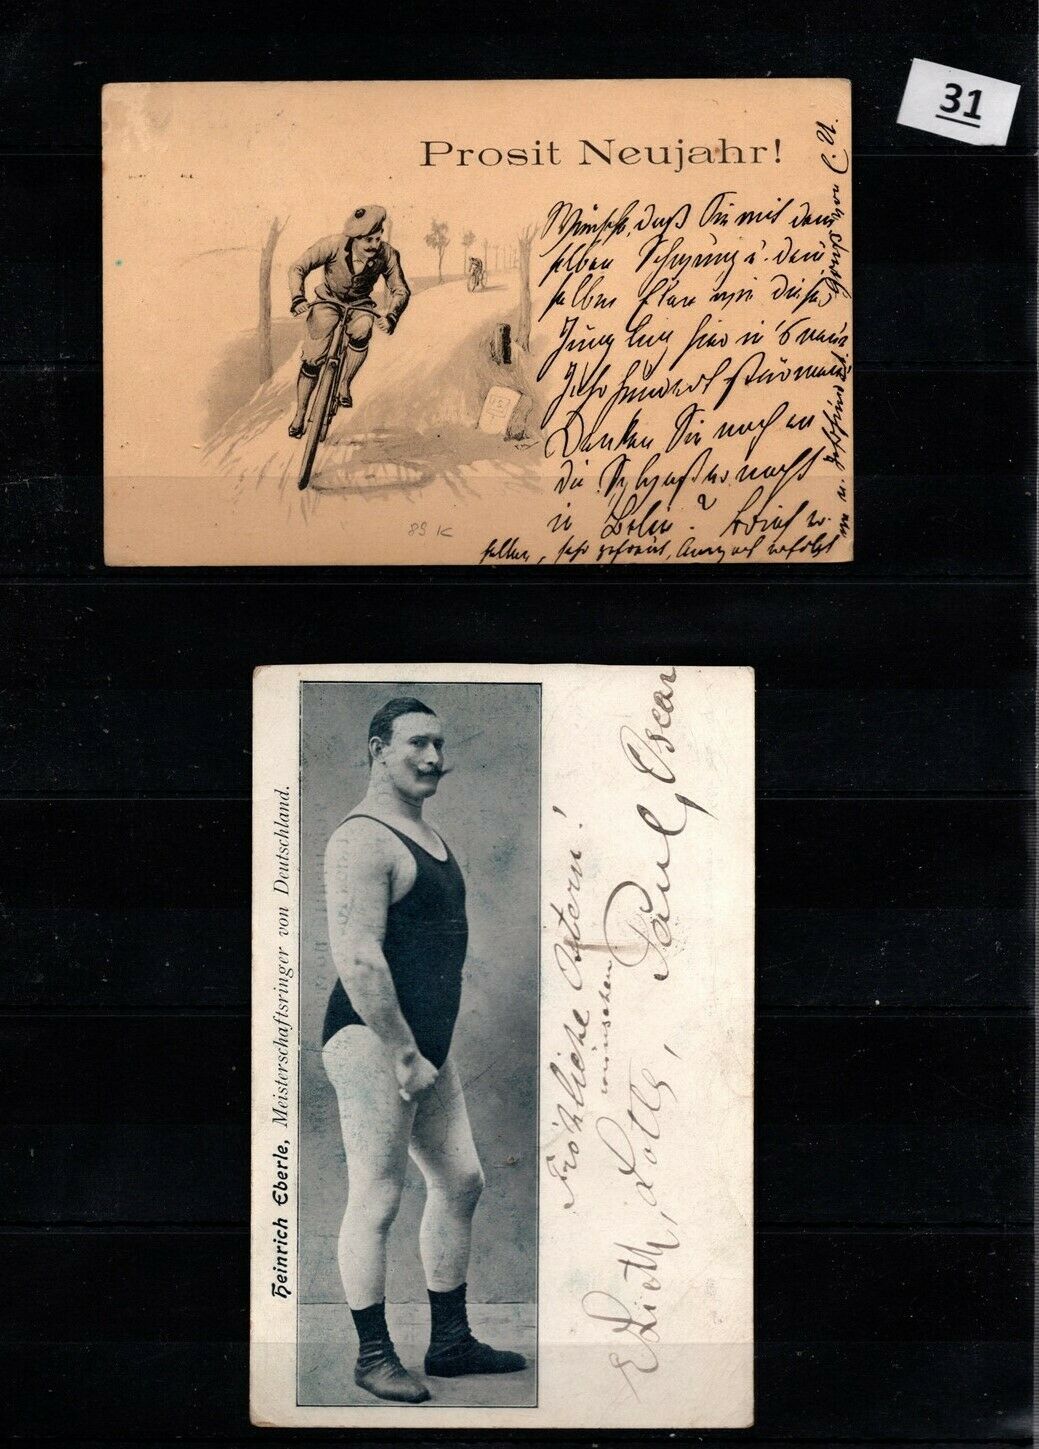 31
Prosit Neujahr!
Wünsche, daß Sie mit dem
selben Schwung u. dem
selben Elan wie dieser
Jüngling hier in's neue
Jahrhundert stürmen.
Denken Sie noch an
die nacht
in ?
sehr gefreut, erfolgt
Gruß von C. U.
89 K
Heinrich Eberle, Meisterschaftsringer von Deutschland.
Fröhliche Ostern!
wünschen
Edith, Lotte, Paul, Oscar